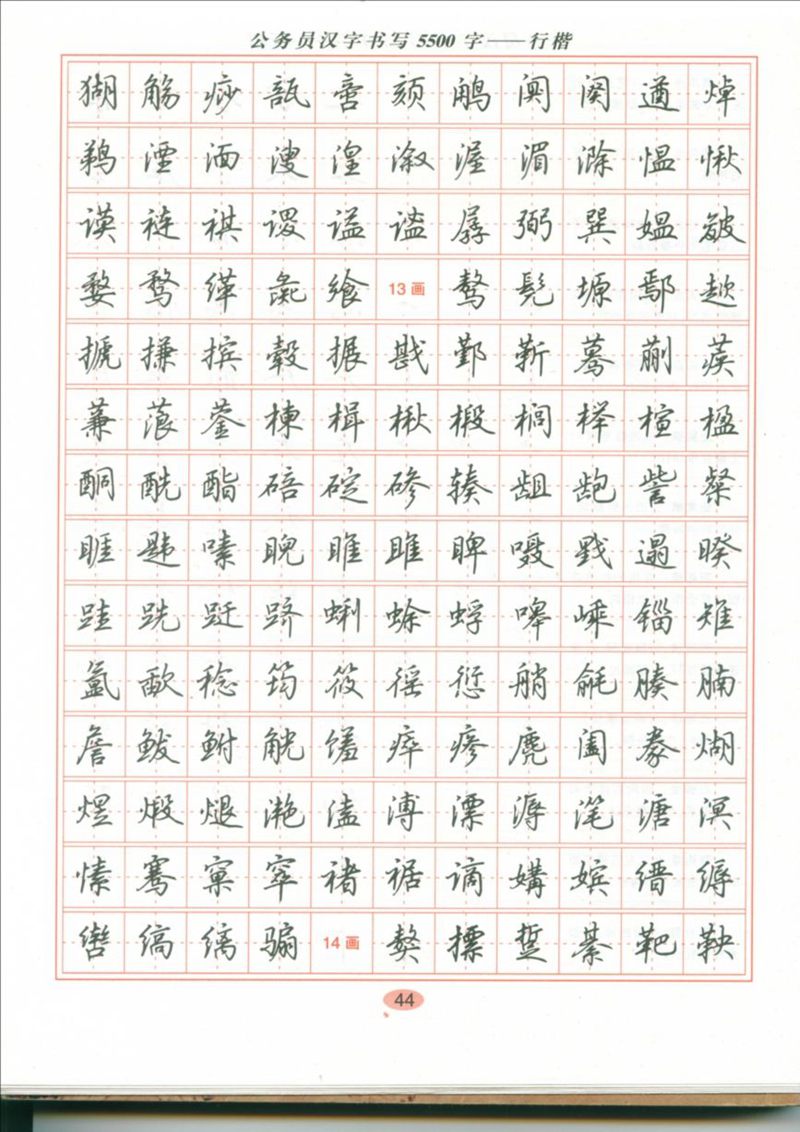 公务员汉字书写5500字——行楷
猢 觞 痧 瓿 啻 颏 鹇 阒 阕 遒 焯
鹈 湮 湎 溲 湟 溆 渥 湄 滁 愠 愀
谟 裢 祺 谡 谥 谧 孱 弼 巽 媪 皴
婺 骛 缂 彘 飨 13画 骜 髡 塬 鄢 趑
摅 搛 摈 毂 搌 戡 鄞 靳 蓦 蒯 蒺
蒹 蒗 蓥 楝 楫 楸 椴 榈 榉 楦 楹
酮 酰 酯 碚 碇 碜 辏 龃 龅 訾 粲
睚 韪 嗉 睨 睢 雎 睥 嗫 戥 遢 暌
跬 跣 跹 跻 蜊 蜍 蜉 嗥 嵊 锱 雉
氲 歃 稔 筠 筱 徭 愆 艄 毹 腠 腩
詹 鲅 鲋 觥 馐 瘁 瘆 麂 阖 豢 煳
煜 煅 煺 滟 溘 溥 溧 溽 滗 溏 溟
愫 骞 窠 窣 褚 裾 谪 媾 嫔 缙 缛
辔 缟 缡 骟 14画 獒 摽 踅 綦 靶 鞅
44